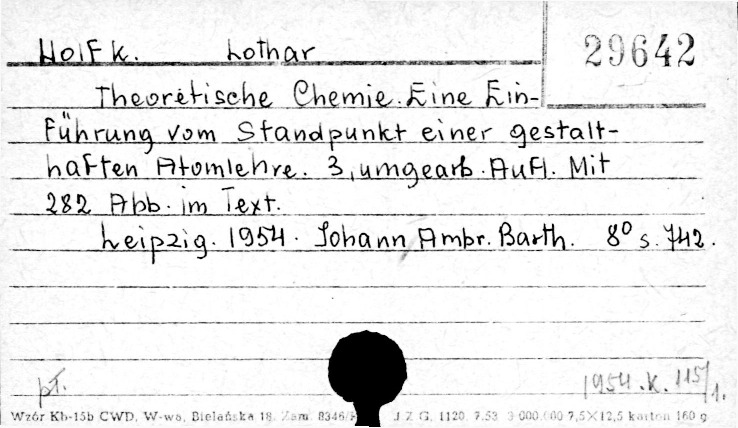 Wolf K. Lothar
29642
Theoretische Chemie. Eine Ein-
führung vom Standpunkt einer gestalt-
haften Atomlehre. 3, umgearb. Aufl. Mit
282 Abb. im Text.
Leipzig. 1954. Johann Ambr. Barth. 8° s. 742.
pł.
1954. K. 115/1.
Wzór Kb-15b CWD, W-wa, Bielańska 18. Zam. 8346/ J.Z.G. 1120. 7.53. 3 000.000 7,5×12,5 karton 160 g